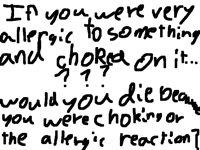 If you were very
allergic to something
and choked on it...
? ? ?
would you die because
you were choking or
the allergic reaction?